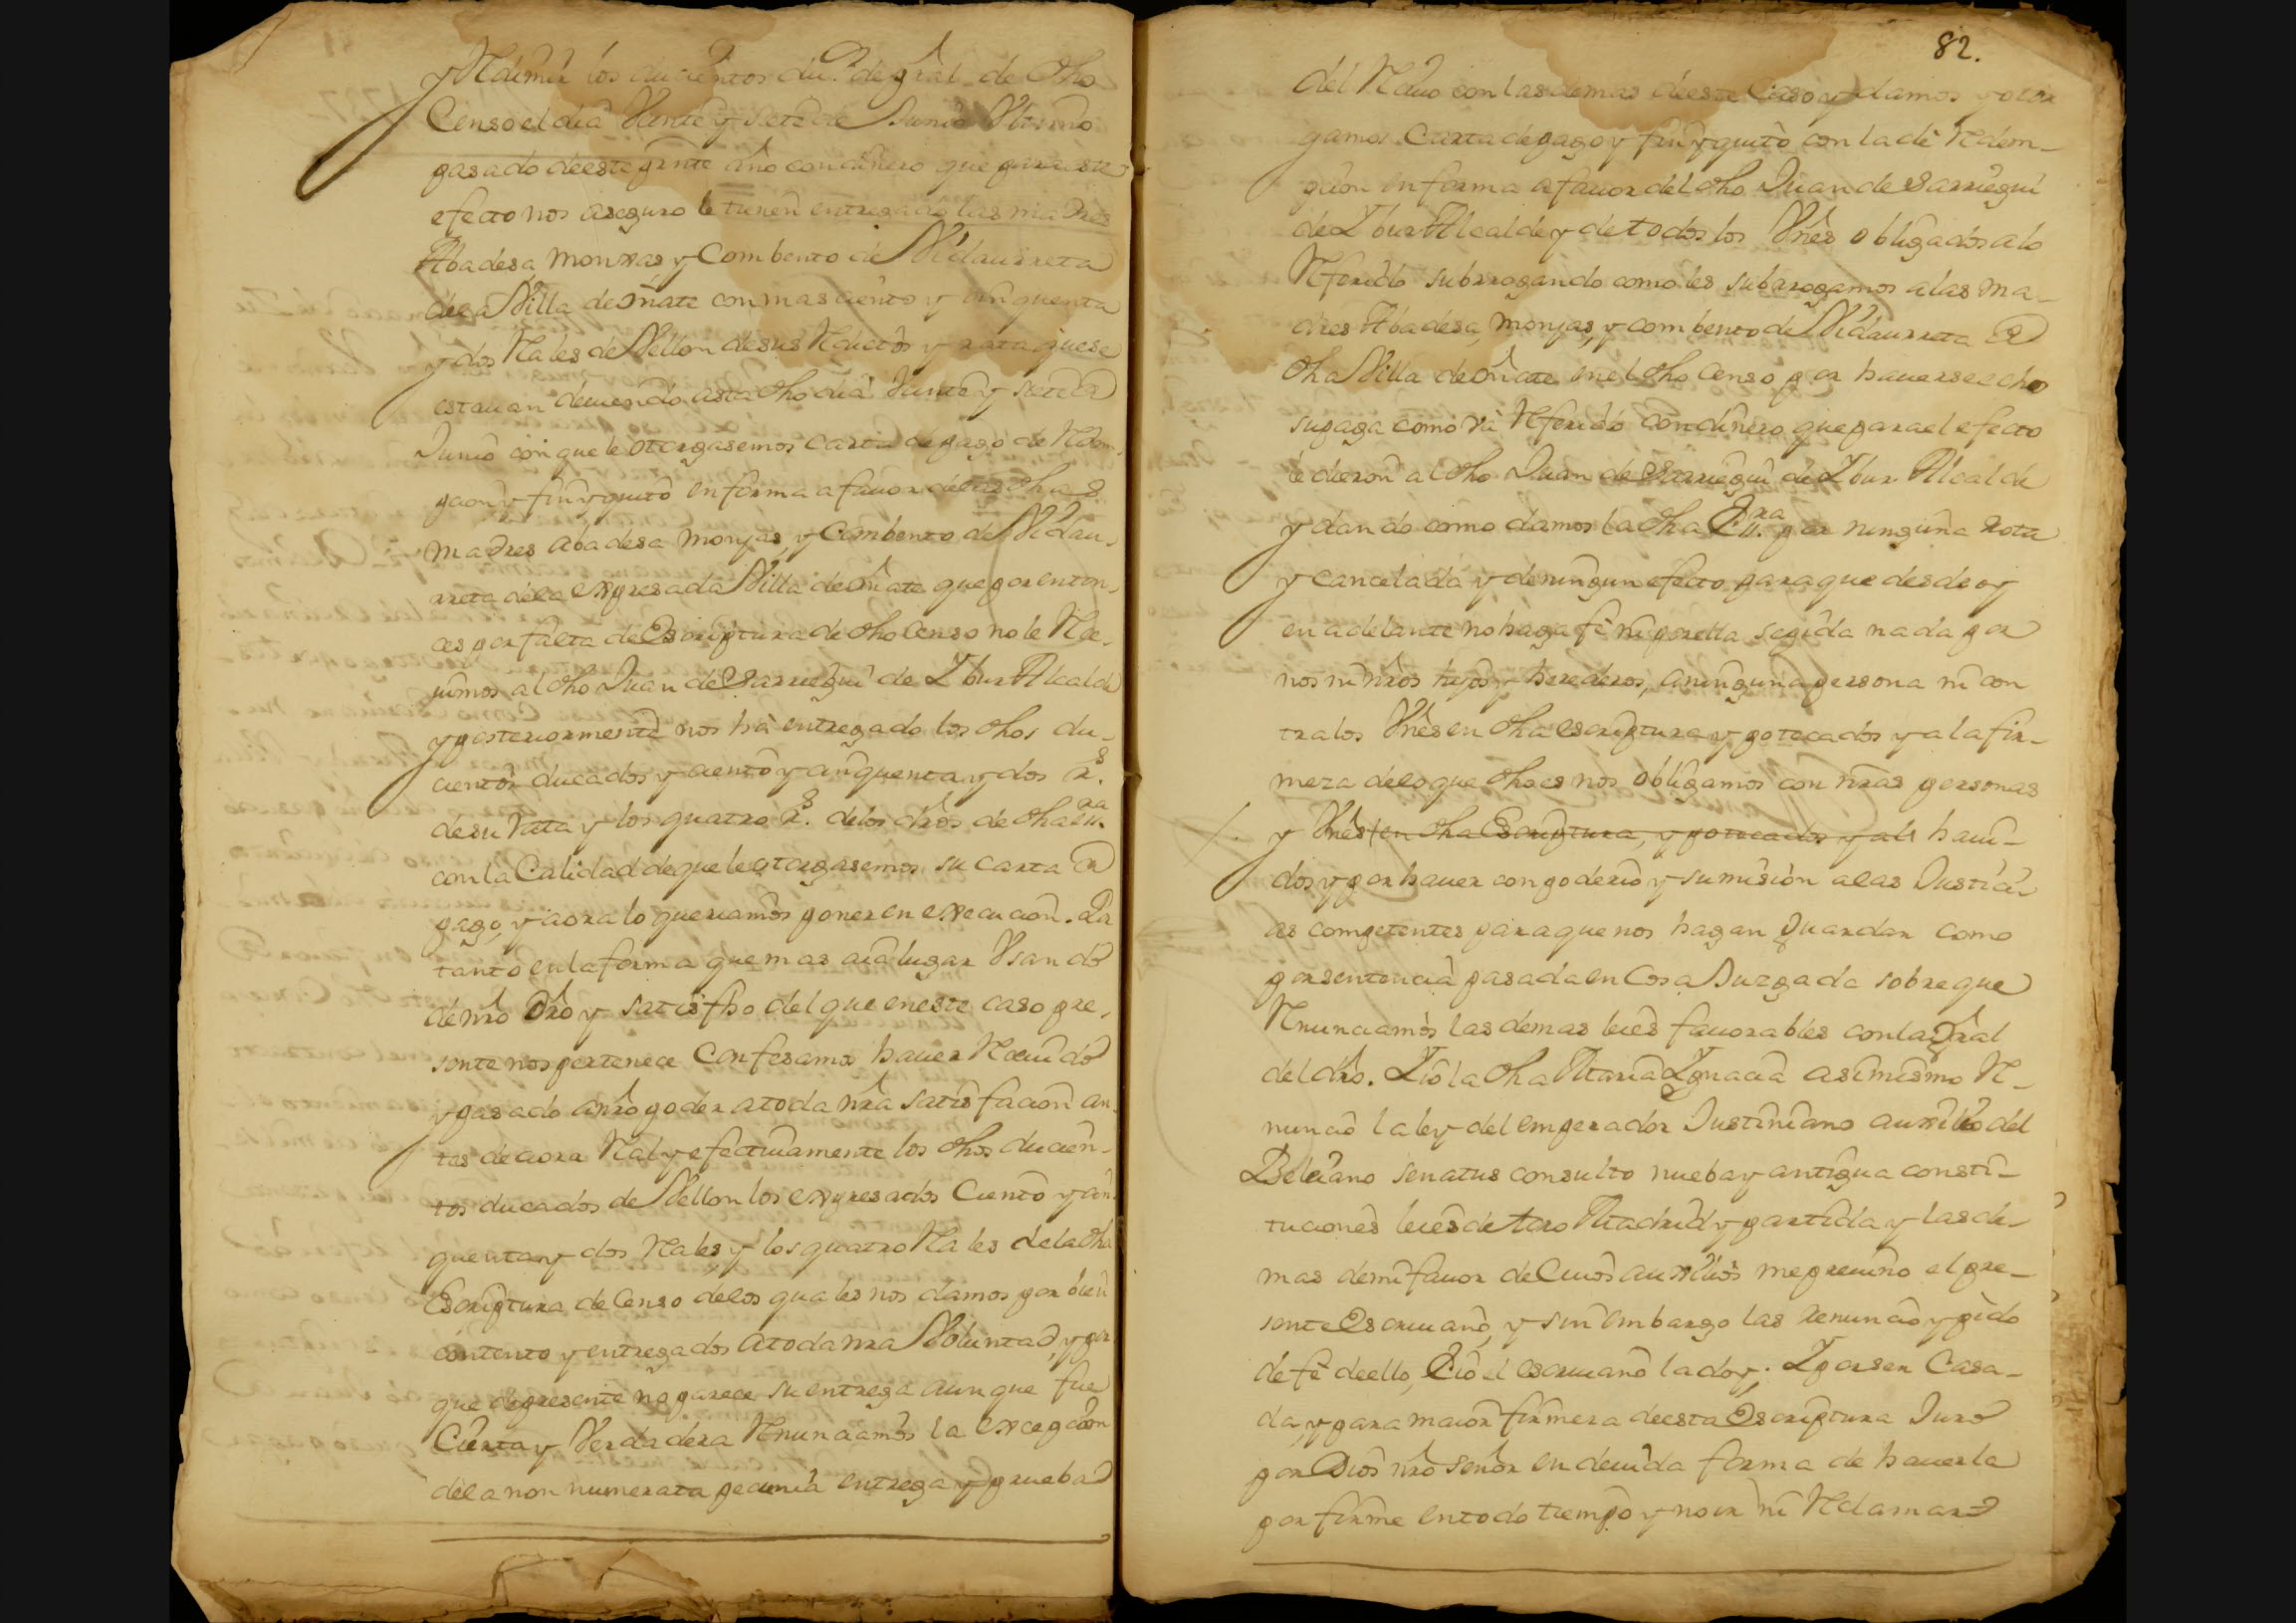 y Redimir los ducientos du.s de pral de dho
Censo el dia Veinte y siete de Junio Vltimo
pasado de este prnte año con dinero que para este
efecto nos aseguro le tienen entregado las madres
Abadesa monxas y Combento de Vidaurreta
de la Villa de oñate con mas ciento y cinquenta
y dos Rales de Vellon de sus Reditos y rata que se
estauan deuiendo asta dho dia Veinte y siete de
Junio con que le otorgasemos carta de pago de Redem-
pcion y fin y quito en forma a fauor de las dhas
madres abadesa monjas y Combento de Vidau-
rreta de la expresada Villa de oñate que por enton-
ces por falta de Escriptura de dho Censo no le Rece-
uimos al dho Juan de Sarriegui de Ybur Alcalde
y posteriormente nos ha entregado los dhos du-
cientos ducados y ciento y cinquenta y dos R.s
de su rata y los quatro R.s de los dros de dha ess.ra
con la Calidad de que le otorgasemos su carta de
pago, y aora lo queriamos poner en execucion. Por
tanto en la forma que mas aia lugar Vsando
de nro dro y satisfho del que en este caso pre-
sente nos pertenece Confesamos hauer Receuido
y pasado a nro poder a toda nra satisfacion an-
tes de aora Ral y efectiuamente los dhos ducien-
tos ducados de Vellon los expresados Ciento y cin-
quenta y dos Rales y los quatro Rales de la dha
Escriptura de Censo de los quales nos damos por bien
contento y entregados a toda nra Voluntad, y por
que de presente no parece su entrega aunque fue
Cierta y Verdadera Renunciamos la excepcion
de la non numerata pecunia entrega y prueba
82.
del Reciuo con las demas de este Caso y damos y otor
gamos Carta de pago y fin y quito con la de Redem-
pcion en forma a fauor del dho Juan de Sarriegui
de Ybur Alcalde y de todos los Vnes obligados a lo
Referido subrrogando como les subrrogamos a las ma-
dres Abadesa, monjas, y combento de Vidaurreta de
dha Villa de oñate en el dho Censo por hauerse echo
su paga como va Referido con dinero que para el efecto
le dieron al dho Juan de Sarriegui de Ybur Alcalde
y dando como damos la dha Ess.ra por ninguna rota
y cancelada y de ningun efecto para que desde oy
en adelante no haga fe ni por ella se pida nada por
nos ni nros hijos y herederos, a ninguna persona ni con
tra los Vnes en dha escriptura ypotecados y a la fir-
meza de lo que dho es nos obligamos con nras personas
y Vnes en dha Escriptura, ypotecados y als haui-
dos y por hauer con poderio y sumision a las Justici-
as competentes para que nos hagan guardar como
por sentencia pasada en Cosa Juzgada sobre que
Renunciamos las demas leies fauorables con la Gral
del dro. Y io la dha Maria Ygnacia asimismo Re-
nuncio la ley del emperador Justiniano auxilio del
Beleiano senatus consulto nueba y antigua consti-
tuciones leies de toro Madrid y partida y las de-
mas de mi fauor de Cuios auxilios me preuino el pre-
sente Escriuano, y sin embargo las renuncio y pido
de fe de ello, E io el escriuano la doy. Y por ser Casa-
da, y para maior firmeza de esta Escriptura Juro
por Dios nro señor en deuida forma de hauerla
por firme en todo tiempo y no ir ni Reclamar